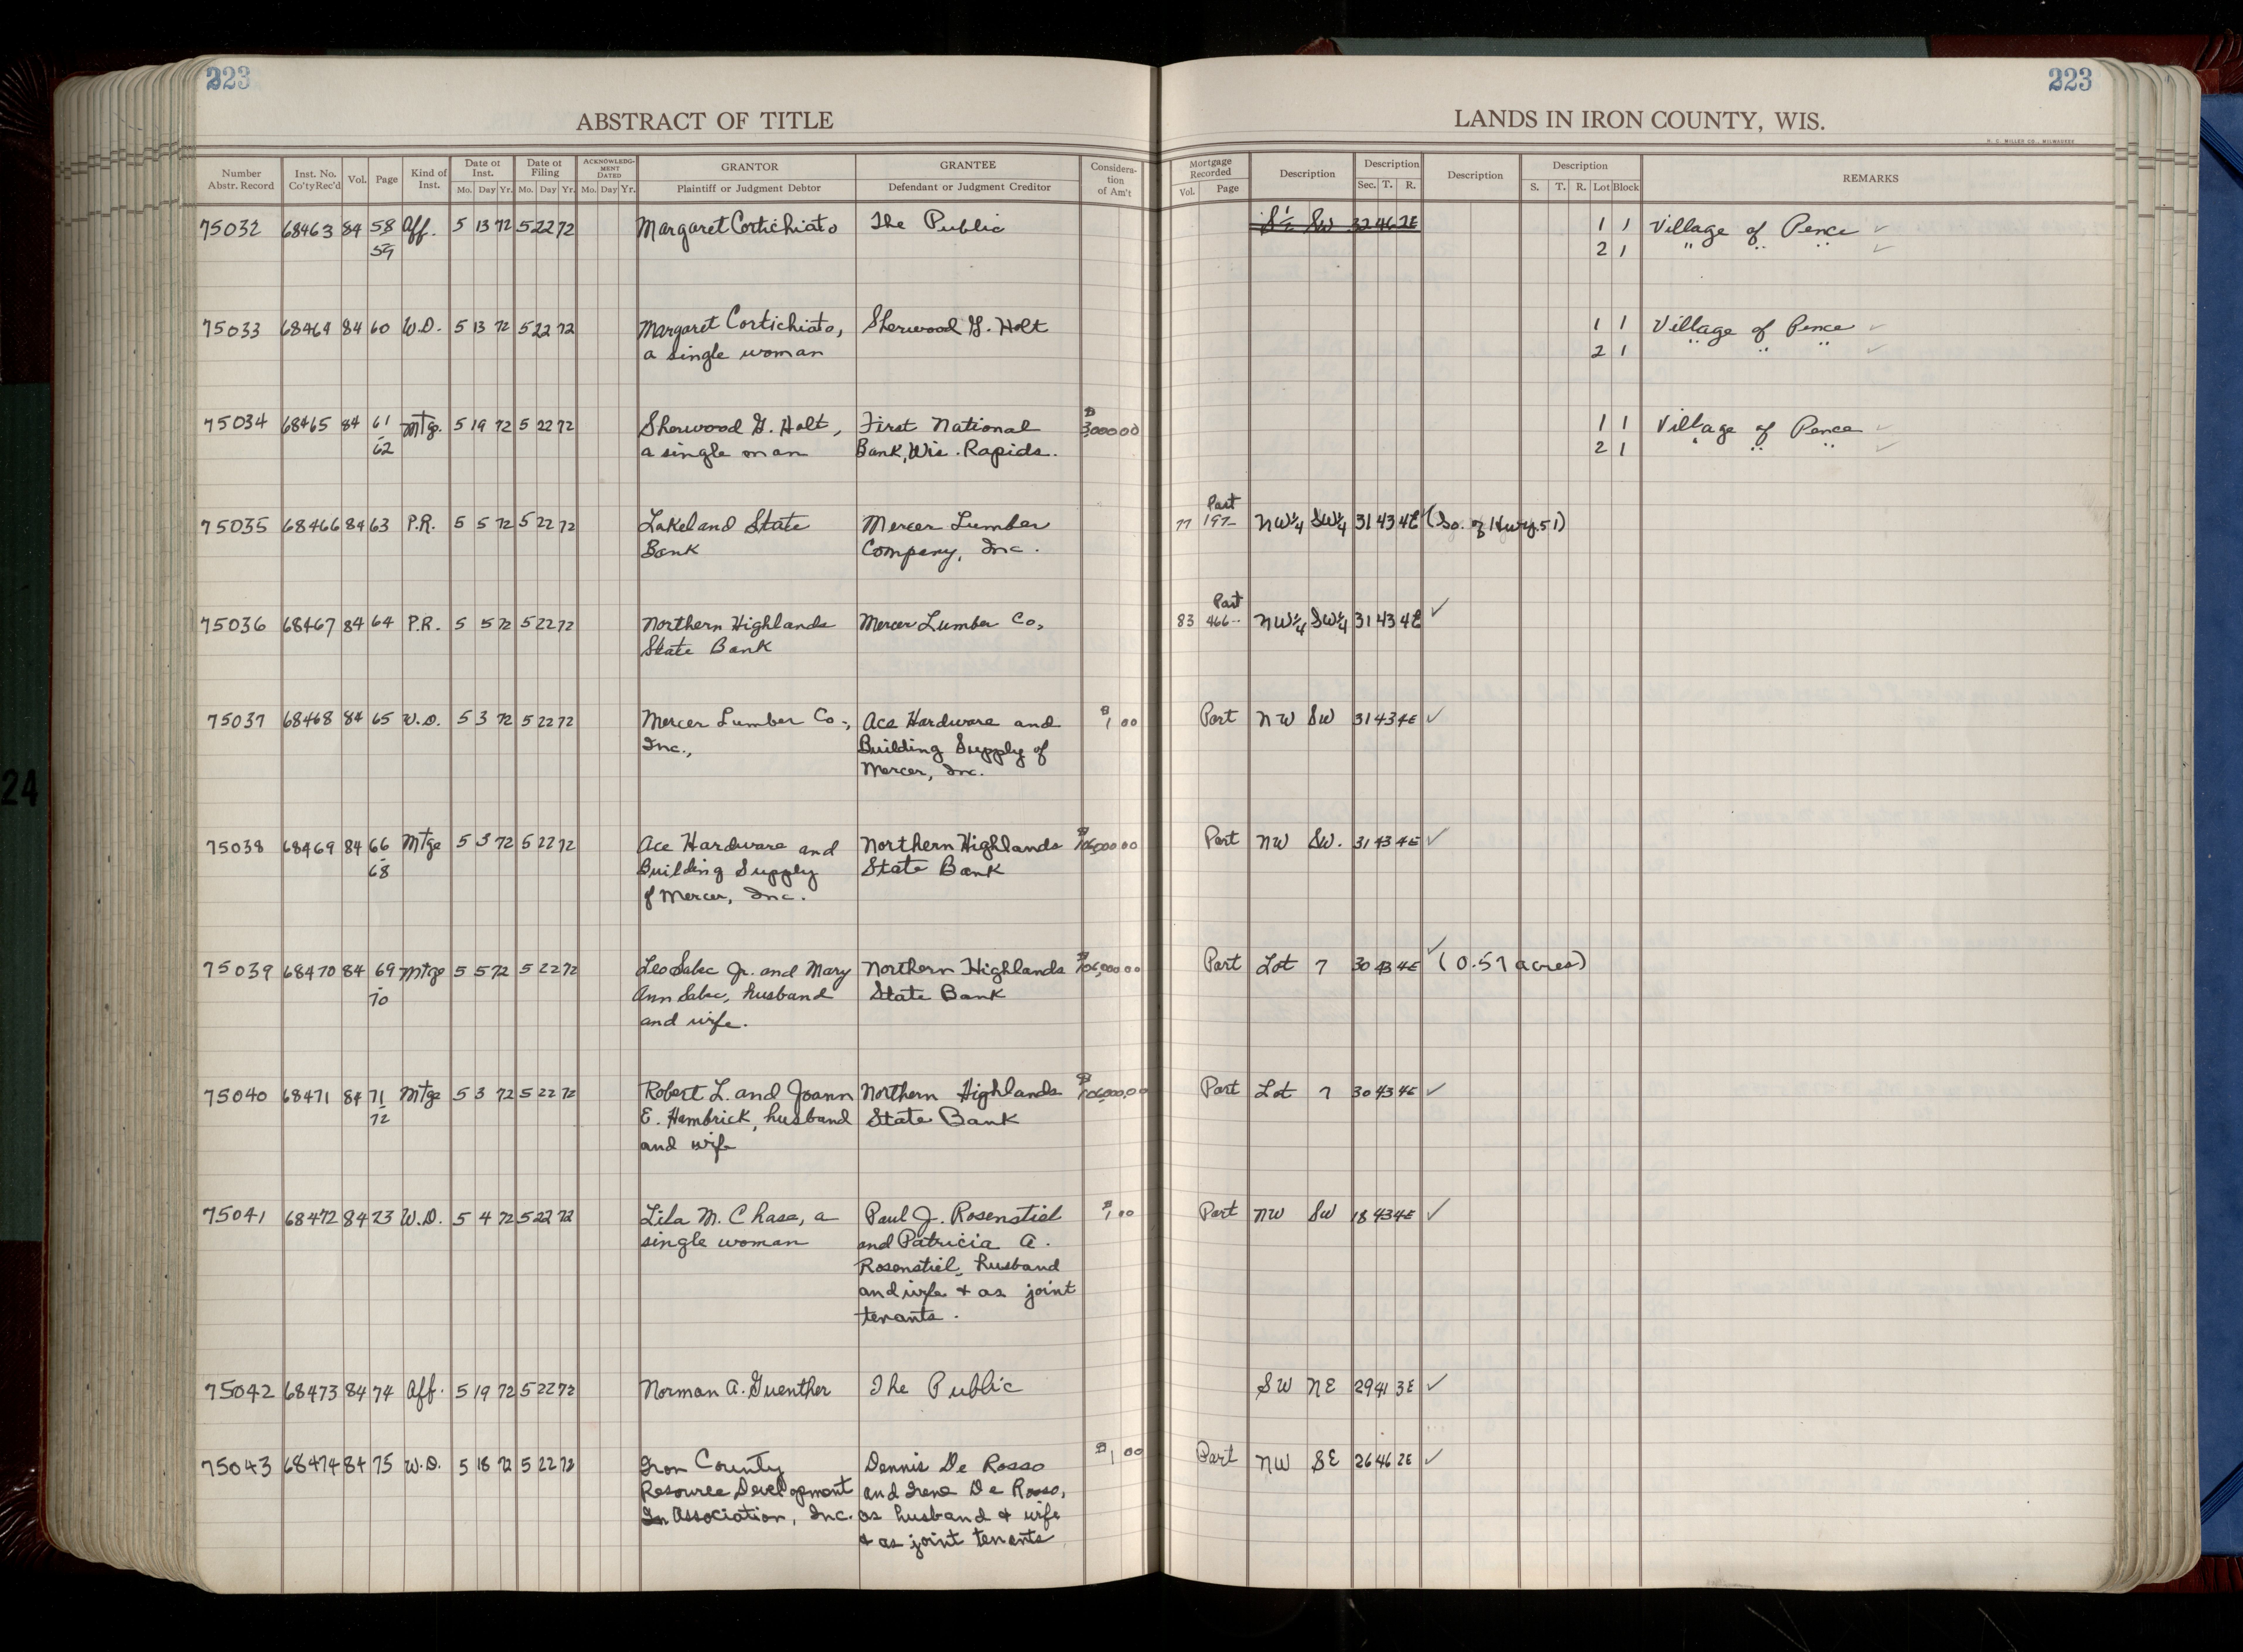 223
223
ABSTRACT OF TITLE
LANDS IN IRON COUNTY, WIS.
H. C. MILLER CO., MILWAUKEE
Number Abstr. Record | Inst. No. Co'ty Rec'd | Vol. | Page | Kind of Inst. | Date of Inst. Mo. Day Yr. | Date of Filing Mo. Day Yr. | ACKNOWLEDGMENT DATED Mo. Day Yr. | GRANTOR Plaintiff or Judgment Debtor | GRANTEE Defendant or Judgment Creditor | Consideration of Am't | Mortgage Recorded Vol. Page | Description | Description Sec. T. R. | Description | Description S. T. R. Lot Block | REMARKS
75032 68463 84 58 Aff. 5 13 72 5 22 72 Margaret Cortichiato The Public S½ SW 32 46 2E 1 1 Village of Pence ✓
59 2 1 " " " ✓
75033 68464 84 60 W.D. 5 13 72 5 22 72 Margaret Cortichiato, Sherwood G. Holt 1 1 Village of Pence ✓
a single woman 2 1 " " " ✓
75034 68465 84 61 Mtg. 5 19 72 5 22 72 Sherwood G. Holt, First National $3,000 00 1 1 Village of Pence ✓
-62 a single man Bank, Wis. Rapids. 2 1 " " " ✓
Part
75035 68466 84 63 P.R. 5 5 72 5 22 72 Lakeland State Mercer Lumber 77 197- NW¼ SW¼ 31 43 4E ✓ (So. of Hwy. 51)
Bank Company, Inc.
Part
75036 68467 84 64 P.R. 5 5 72 5 22 72 Northern Highlands Mercer Lumber Co, 83 466-- NW¼ SW¼ 31 43 4E ✓
State Bank
75037 68468 84 65 W.D. 5 3 72 5 22 72 Mercer Lumber Co., Ace Hardware and $1 00 Part NW SW 31 43 4E ✓
Inc., Building Supply of
Mercer, Inc.
75038 68469 84 66 Mtge 5 3 72 5 22 72 Ace Hardware and Northern Highlands $106,000 00 Part NW SW. 31 43 4E ✓
-68 Building Supply State Bank
of Mercer, Inc.
75039 68470 84 69 Mtge 5 5 72 5 22 72 Leo Sabec Jr. and Mary Northern Highlands $106,000 00 Part Lot 7 30 43 4E ✓ (0.57 acres)
-70 Ann Sabec, husband State Bank
and wife.
75040 68471 84 71 Mtge 5 3 72 5 22 72 Robert L. and Joann Northern Highlands $106,000,00 Part Lot 7 30 43 4E ✓
-72 E. Hambrick, husband State Bank
and wife
75041 68472 84 73 W.D. 5 4 72 5 22 72 Lila M. Chase, a Paul J. Rosenstiel $1 00 Part NW SW 18 43 4E ✓
single woman and Patricia A.
Rosenstiel, husband
and wife + as joint
tenants.
75042 68473 84 74 Aff. 5 19 72 5 22 72 Norman A. Guenther The Public SW NE 29 41 3E ✓
75043 68474 84 75 W.D. 5 18 72 5 22 72 Iron County Dennis De Rosso $1 00 Part NW SE 26 46 2E ✓
Resource Development and Irene De Rosso,
In Association, Inc. as husband + wife
+ as joint tenants
24